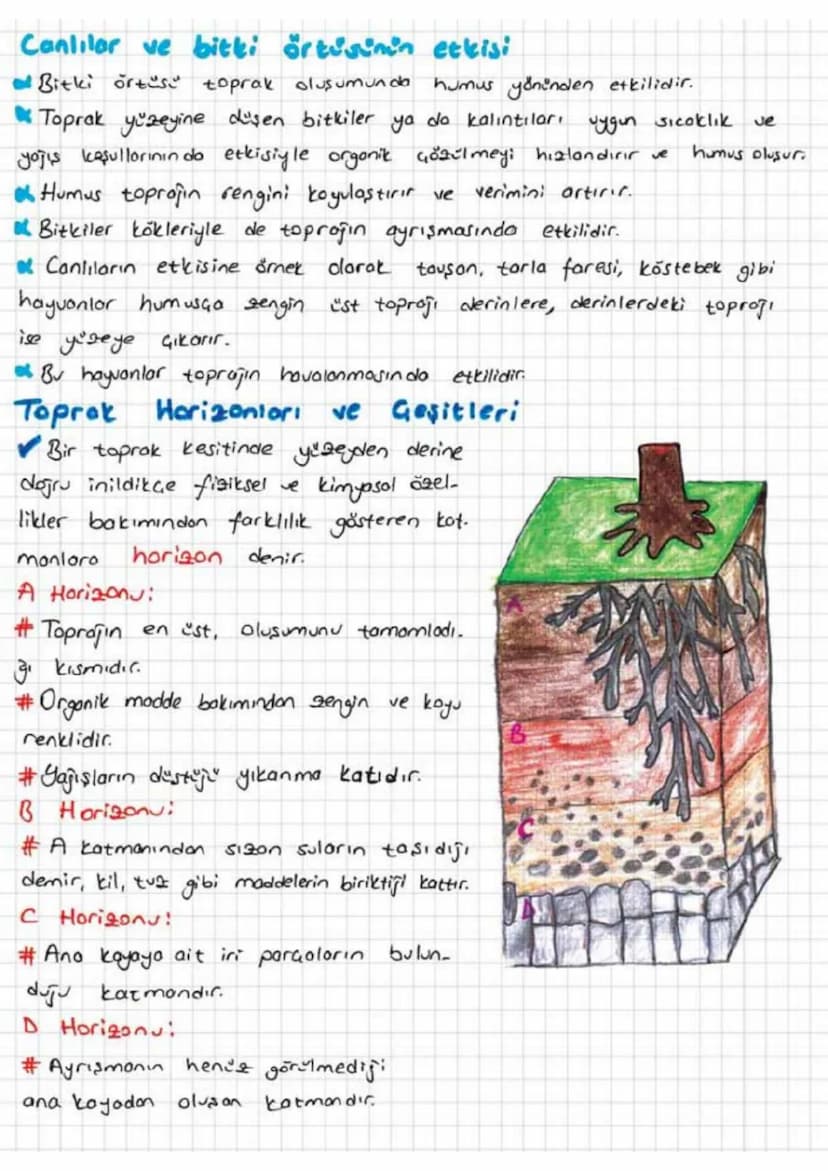 Canlılar ve bitki örtüsünün etkisi
Bitki örtüsü toprak oluşumunda humus yönünden etkilidir.
Toprak yüzeyine düşen bitkiler ya da kalıntıları uygun sıcaklık ve
yağış koşullarının da etkisiyle organik çözülmeyi hızlandırır ve humus oluşur.
Humus toprağın rengini koyulaştırır ve verimini artırır.
Bitkiler kökleriyle de toprağın ayrışmasında etkilidir.
Canlıların etkisine örnek olarak tavşan, tarla faresi, köstebek gibi
hayvanlar humusça zengin üst toprağı derinlere, derinlerdeki toprağı
ise yüzeye çıkarır.
Bu hayvanlar toprağın havalanmasında etkilidir.
Toprak Horizonları ve Çeşitleri
✓ Bir toprak kesitinde yüzeyden derine
doğru inildikçe fiziksel ve kimyasal özel-
likler bakımından farklılık gösteren kat-
manlara horizon denir.
A Horizonu:
# Toprağın en üst, oluşumunu tamamladı-
ğı kısmıdır.
# Organik madde bakımından zengin ve koyu
renklidir.
# Yağışların düştüğü yıkanma katıdır.
B Horizonu:
# A katmanından sızan suların taşıdığı
demir, kil, tuz gibi maddelerin biriktiği kattır.
C Horizonu:
# Ana kayaya ait iri parçaların bulun-
duğu katmandır.
D Horizonu:
# Ayrışmanın henüz görülmediği
ana kayadan oluşan katmandır.
A
B
C
D